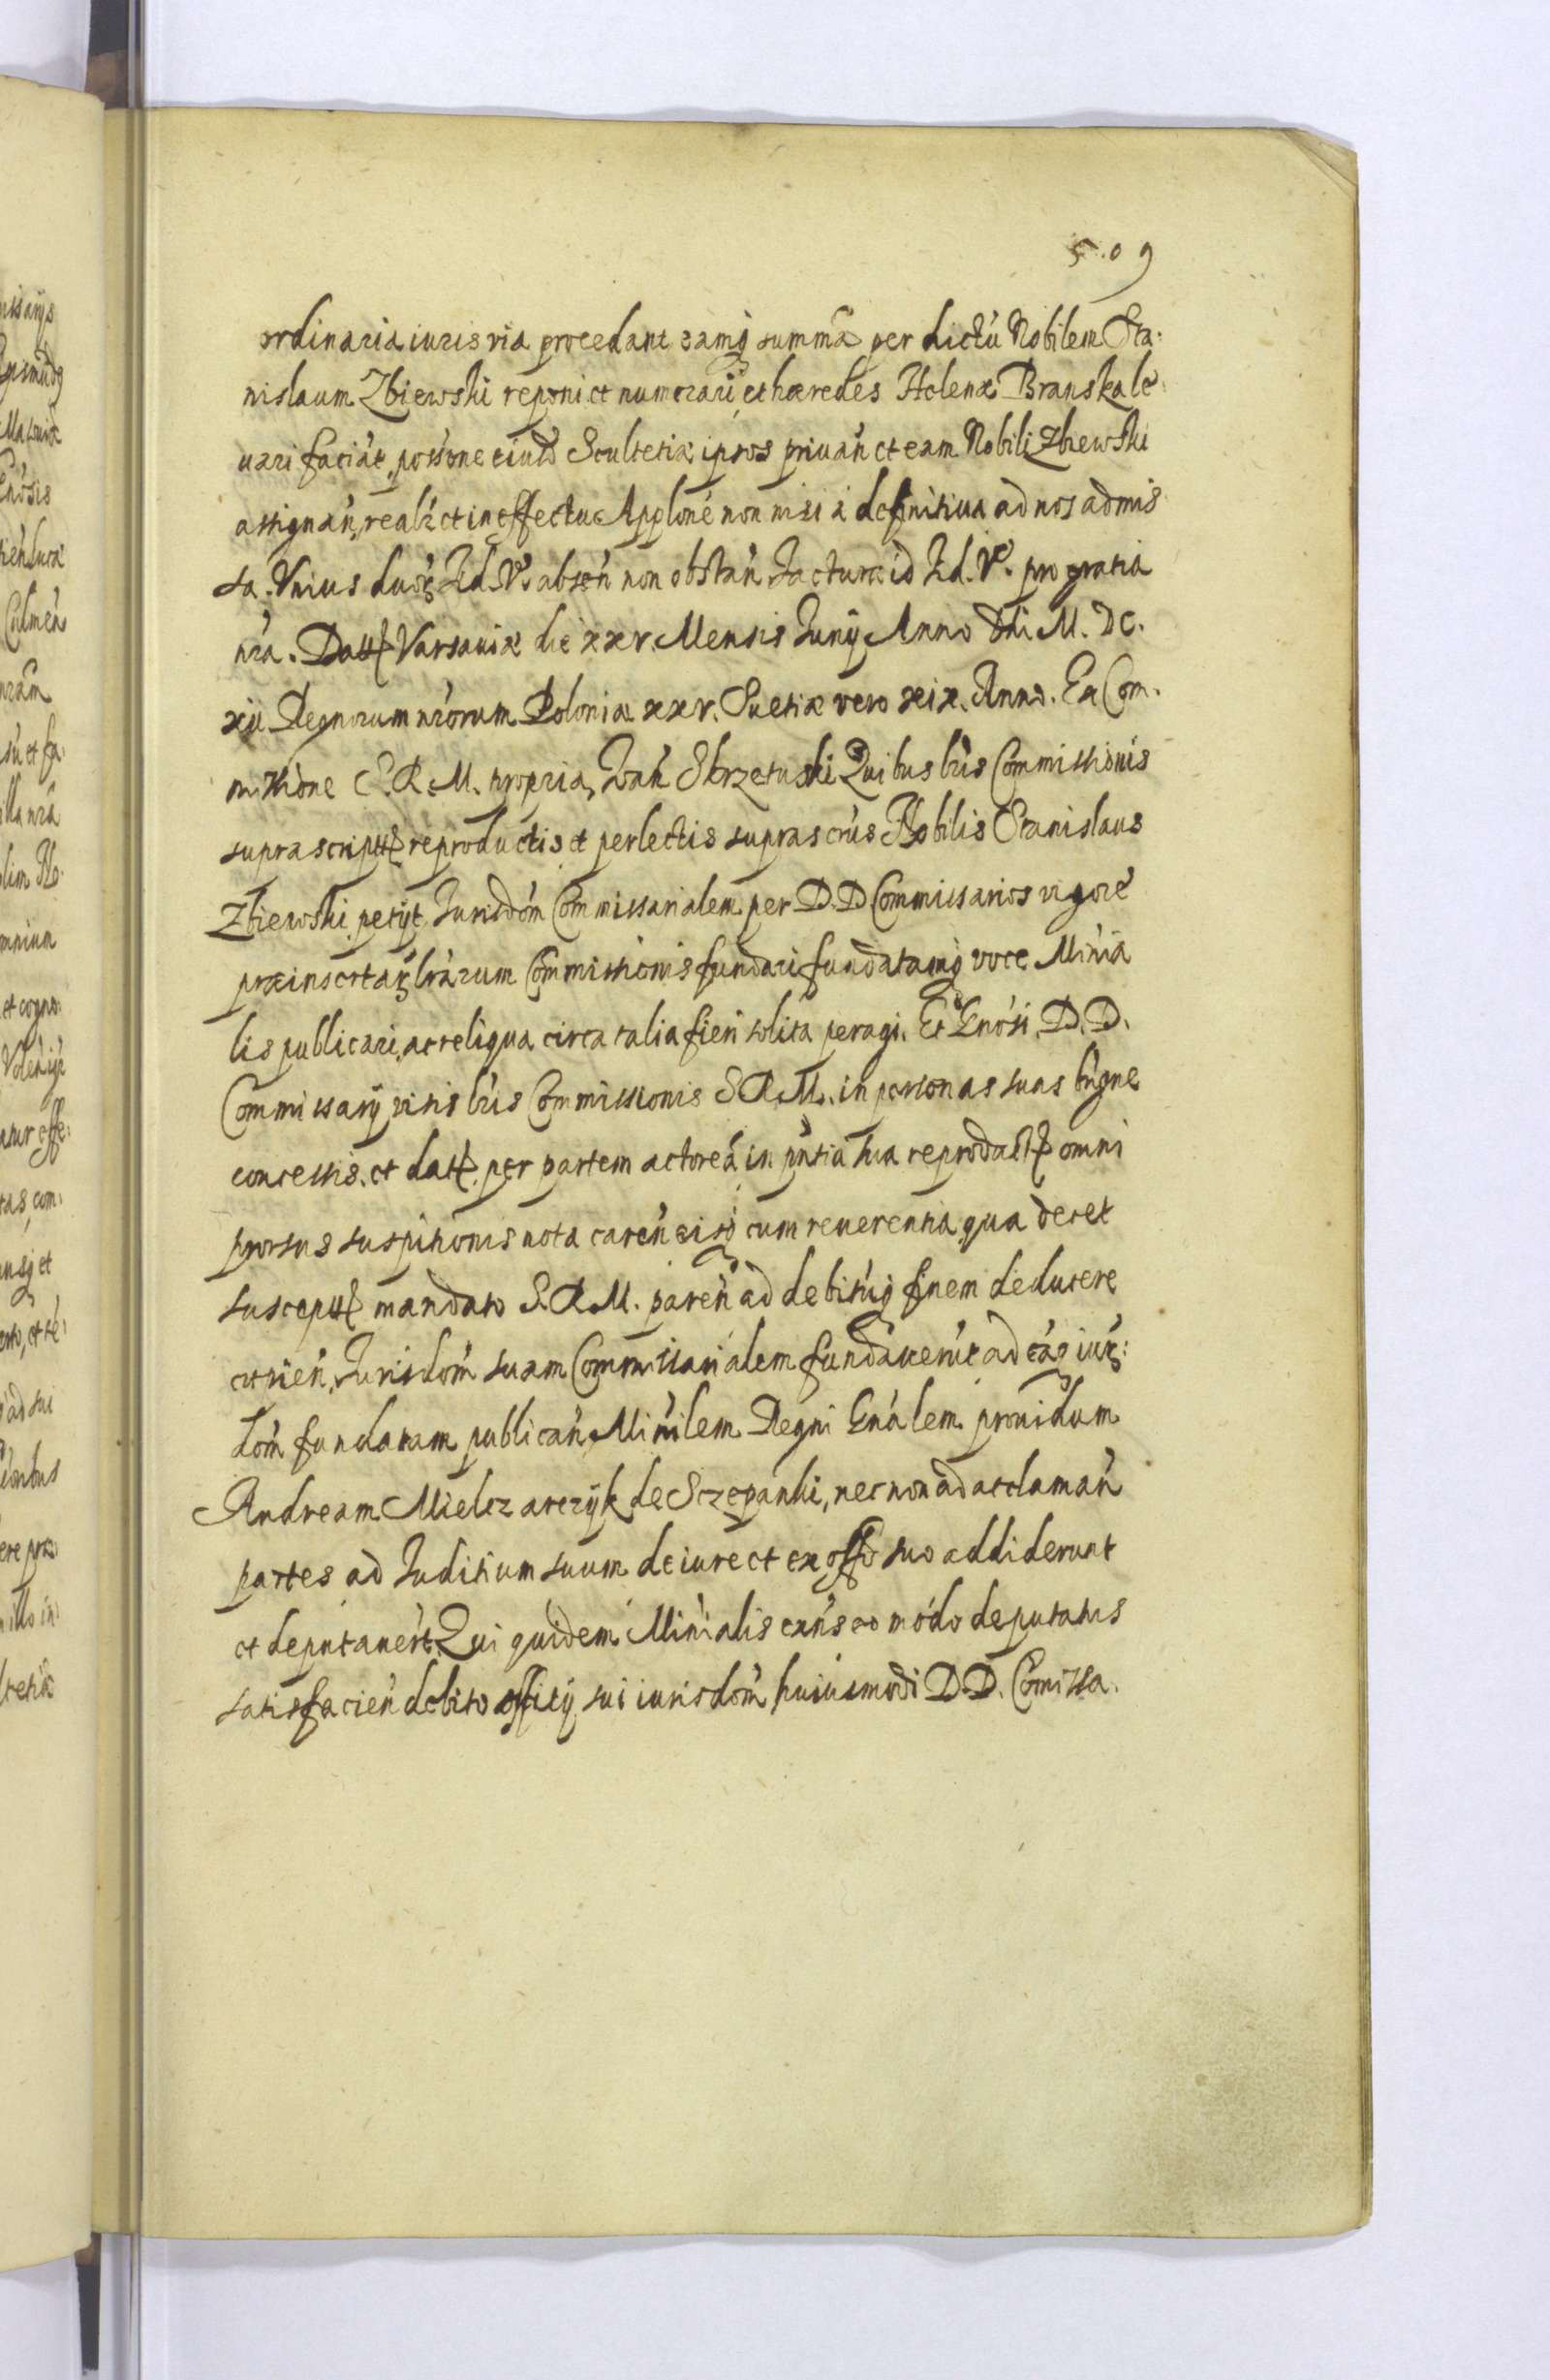 5.09
ordinaria iuris via procedant eamq summã per dictũ Nobilem Sta:
nislaum Zbiewski reponi et numerari, et hæredes Helenæ Branska le
uari faciát, possone eiusd Scultetiæ ipsos priuań et eam Nobili Zbiewski
assignań, realr et in effectu Applone non nisi à definitiua ad nos admis
sa. Vnius duor Fid. V. absen non obstań Facturæ id Fid. V. pro gratia
nrã. Datt Varsauiæ die xxv. Mensis Iunij Anno Dni M. DC.
xii Regnorum nrorum Poloniæ xxv. Suetiæ vero xix. Anno. Ex Com.
missione S. R. M. propria, Joań Skrzetuski Quibus lris Commissionis
suprascriptt reproductis et perlectis suprascrus Nobilis Stanislaus
Zbiewski petijt Jurisdom Commissarialem per D. D. Commissarios vigore
præinsertar lrarum Commissionis fundari fundatamq voce Minia
lis publicari, ac reliqua circa talia fieri solita peragi. Et Gnosi D. D.
Commissarij visis lris Commissionis S R. M. in personas suas bngne
concessis. et datt. per partem actoreã in pntia sua reprodactt omni
prorsus suspitionis nota careń eisq cum reuerentia qua decet
susceptt mandato S. R. M. pareń ad debitúq finem deducere
cupień, Jurisdom suam Commissarialem fundauerút ad eáq iur:
dom fundatam publicań Minilem Regni Gnalem prouidum
Andream Mielczarczyk de Sczepanki, nec non ad acclamań
partes ad Juditium suum de iure et ex offo suo addiderunt
et deputauert. Qui quidem Minialis exns eo módo deputatus
satisfacień debito officij sui iurisdom huiusmodi D. D. Comissa.